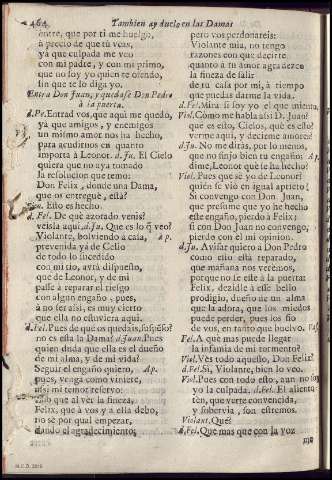 464 Tambien ay duelo en las Damas
entre, que por ti me huelgo,
à precio de que tu veas,
yà que culpada me veo
con mi padre, y con mi primo,
que no soy yo quien te ofendo,
sin que te lo diga yo.
Entra Don Juan, y quedase Don Pedro
à la puerta.
d.Pe. Entrad vos, que aqui me quedo,
yà que amigos, y enemigos
un mismo amor nos ha hecho,
para acudirnos en quanto
importa à Leonor. d. Ju. El Cielo
quiera que no aya tomado
la resolucion que temo:
Don Felix, donde una Dama,
que os entreguè, està?
Esto es hecho.
d. Fel. De què azorado venis?
veisla aqui. d. Ju. Que es lo q veo?
Violante, bolviendo à casa, Ap.
prevenida yà de Celio
de todo lo sucedido
con mi tio, avrà dispuesto,
que de Leonor, y de mi
passe à reparar el riesgo
con algun engaño, pues,
à no ser assi, es muy cierto
que ella no estuviera aqui.
d. Fel. Pues de què os quedais suspenso?
no es esta la Dama? d. Juan. Pues
quien duda que ella es el dueño
de mi alma, y de mi vida?
Seguir el engaño quiero, Ap.
pues, venga como viniere,
assi me reservo:
que al ver la fineza,
Felix, que à vos y à ella debo,
no sè por qual empezar,
dando el agradecimiento;
pero vos perdonareis:
Violante mia, no tengo
razones con que decirte
quanto à tu amor agradezco
la fineza de salir
de tu casa por mi, à tiempo
que puedas darme la vida.
d. Fel. Mira si soy yo el que miento.
Viol. Como me habla assi D. Juan?
que es esto, Cielos, què es esto?
verme aqui, y decirme amores?
d. Ju. No me diràs, por lo menos,
que no finjo bien tu engaño: Ap.
dime, Leonor què se ha hecho?
Viol. Pues què sè yo de Leonor?
quièn se viò en igual aprieto!
Si convengo con Don Juan,
que presume que yo he hecho
este engaño, pierdo à Felix;
si con Don Juan no convengo,
pierdo con èl mi opinion.
d. Ju. Avisar quiero à Don Pedro
como ello està reparado,
que mañana nos verèmos,
porque no se estè à la puerta:
Felix, dezidle à esse bello
prodigio, dueño de un alma
que la adora, que los miedos
puede perder, pues los fio
de vos, en tanto que buelvo.
d. Fel. A què mas puede llegar
la infamia de mi tormento?
Viol. Vès todo aquesso, Don Felix?
d. Fel. Si, Violante, bien lo veo.
Viol. Pues con todo esso, aun no soy
yo la culpada. d. Fel. El aliento
tèn, que verte convencida,
y sobervia, son estremos.
Violant. Què?
d. Fel. Que mas que con la voz